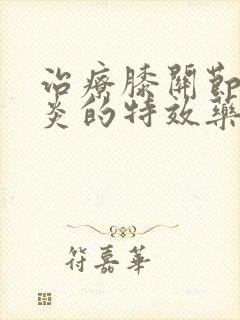 治療膝關節
炎的特效藥
符嘉華